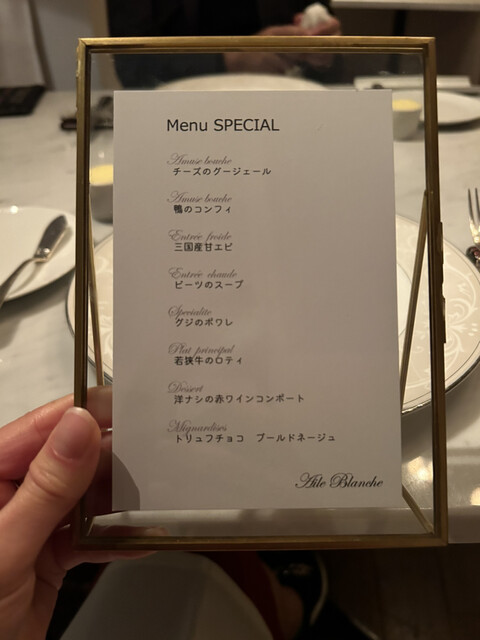 Menu SPECIAL
Amuse bouche
チーズのグージェール
Amuse bouche
鴨のコンフィ
Entrée froide
三国産甘エビ
Entrée chaude
ビーツのスープ
Spécialité
グジのポワレ
Plat principal
若狭牛のロティ
Dessert
洋ナシの赤ワインコンポート
Mignardises
トリュフチョコ　ブールドネージュ
Aile Blanche